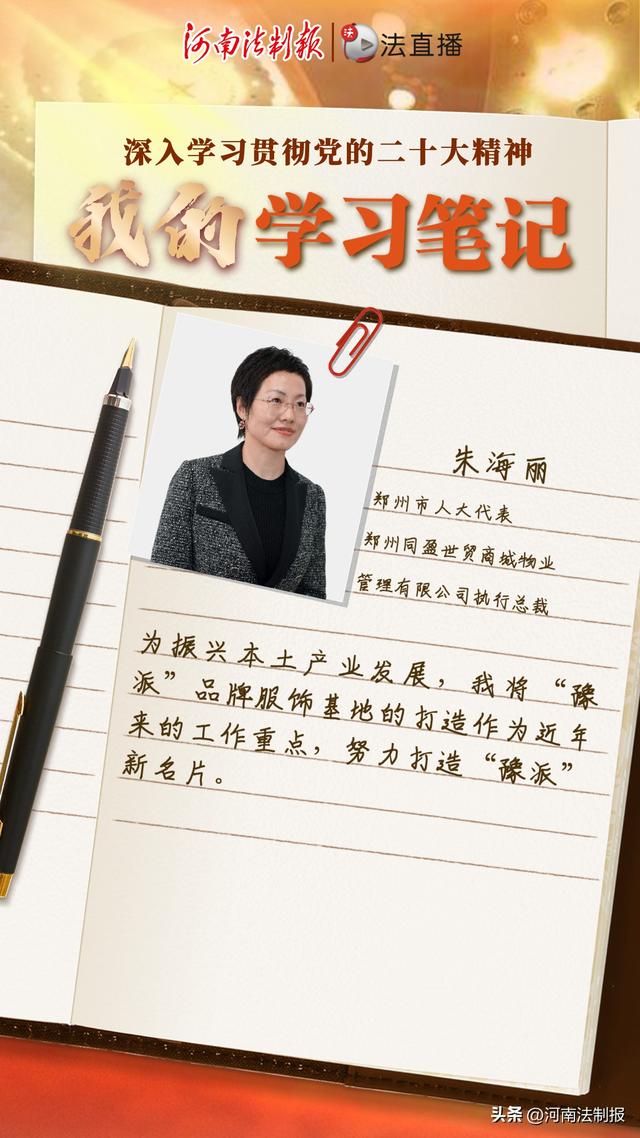 河南法制报 法直播
深入学习贯彻党的二十大精神
我的学习笔记
朱海丽
郑州市人大代表
郑州同盈世贸商城物业
管理有限公司执行总裁
为振兴本土产业发展，我将“豫
派”品牌服饰基地的打造作为近年
来的工作重点，努力打造“豫派”
新名片。
头条 @河南法制报